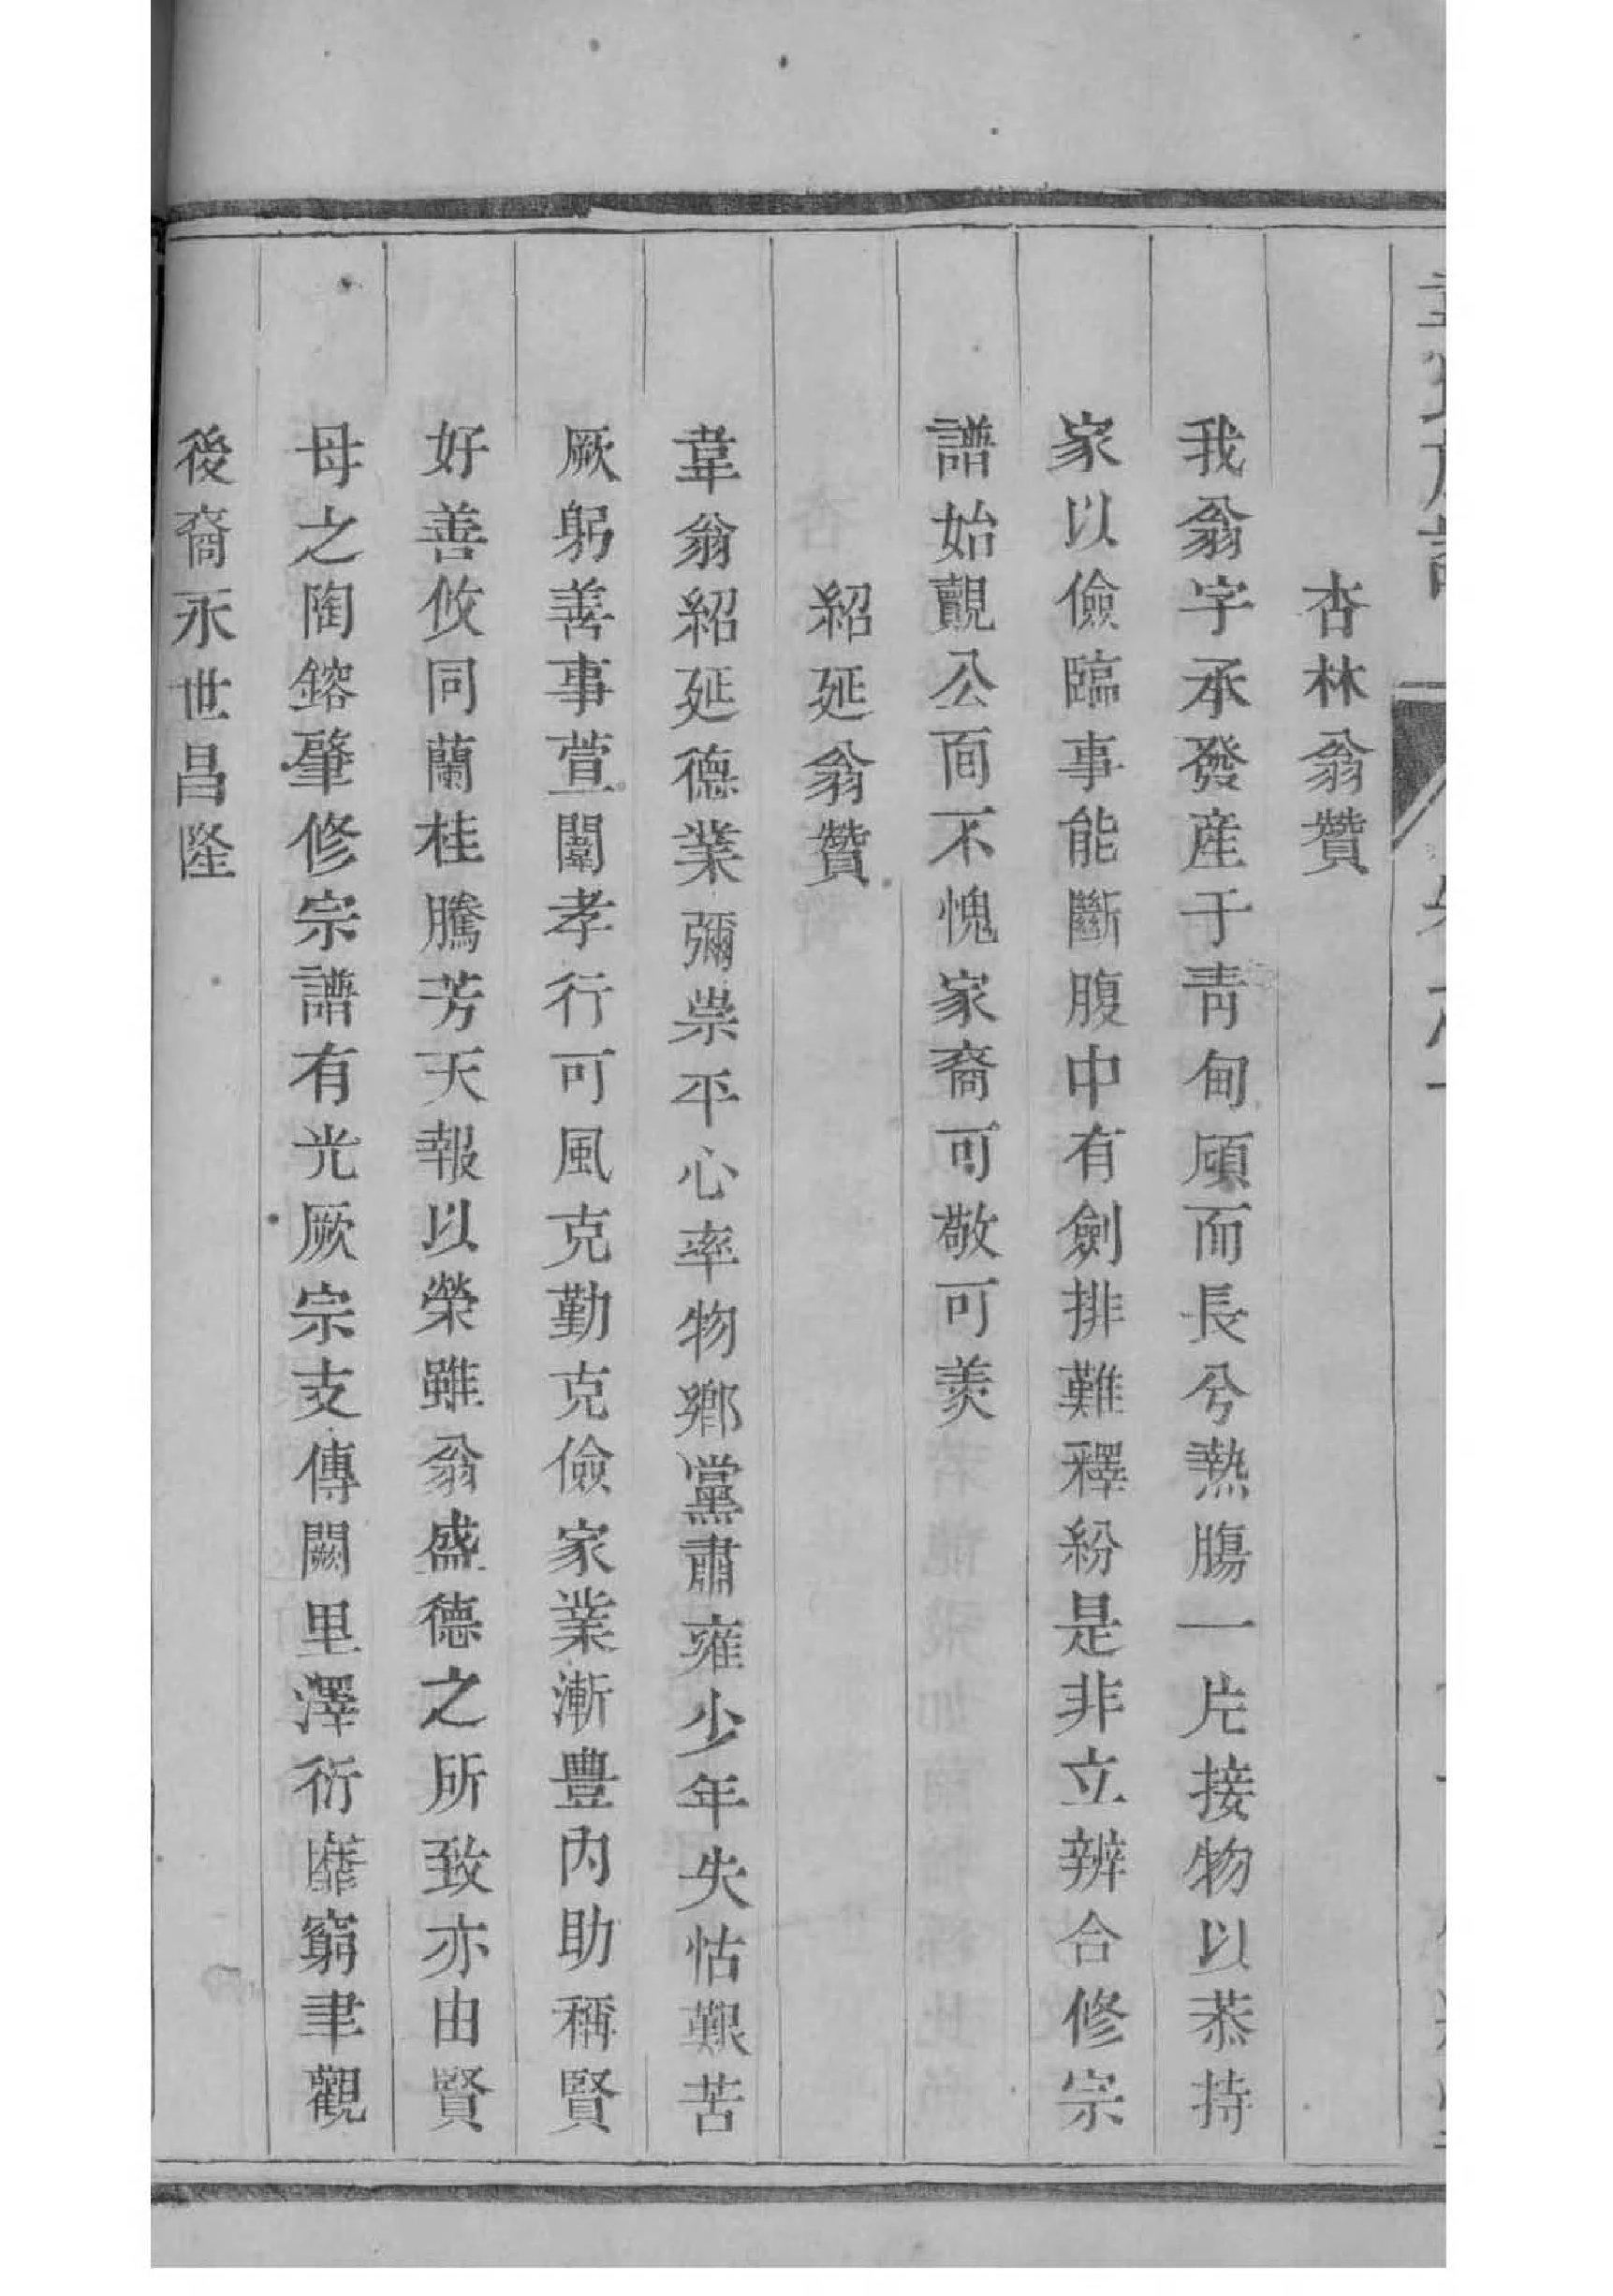 杏林翁贊
我翁字承發産于靑甸頎而長兮熱膓一片接物以恭持
家以儉臨事能斷腹中有劍排難釋紛是非立辨合修宗
譜始覿公面不愧家裔可敬可羨
紹延翁贊
韋翁紹延德業彌崇平心率物鄉黨肅雍少年失怙艱苦
厥躬善事萱闈孝行可風克勤克儉家業漸豐內助稱賢
好善攸同蘭桂騰芳天報以榮雖翁盛德之所致亦由賢
母之陶鎔肇修宗譜有光厥宗支傳闕里澤衍靡窮聿觀
後裔永世昌隆